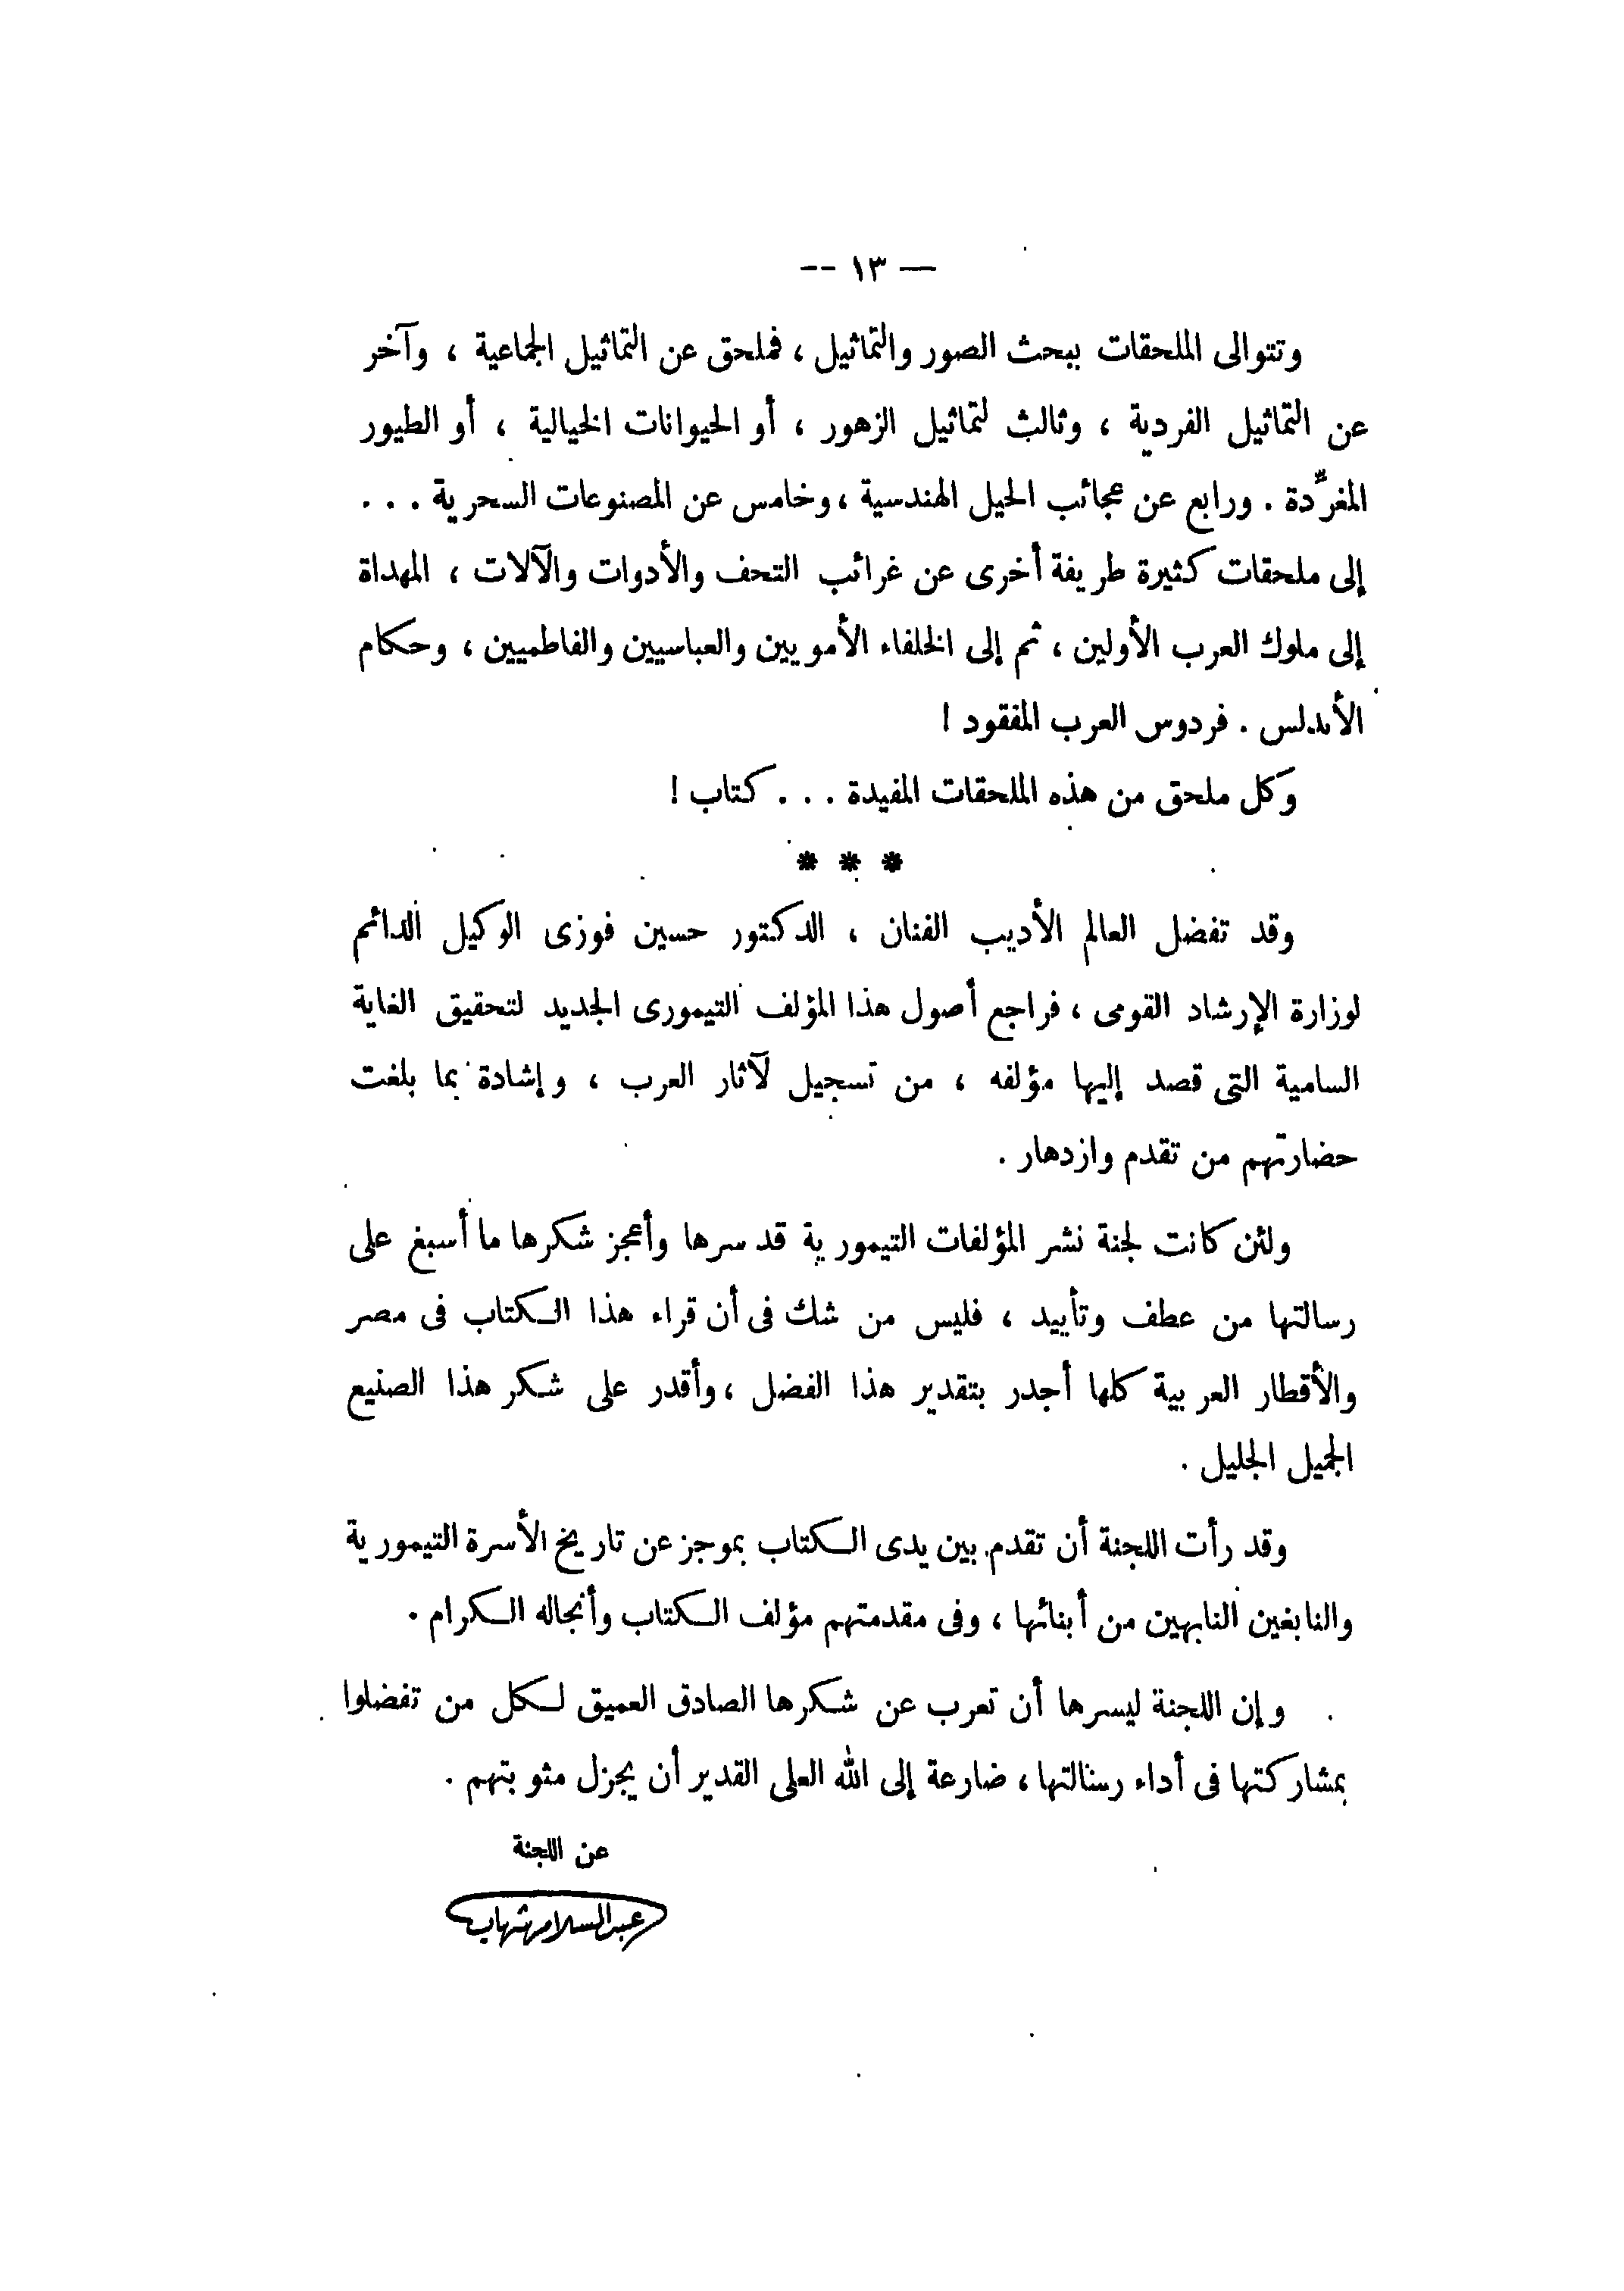 — ١٣ --
وتتوالى الملحقات ببحث الصور والتماثيل ، فملحق عن التماثيل الجماعية ، وآخر
عن التماثيل الفردية ، وثالث لتماثيل الزهور ، أو الحيوانات الخيالية ، أو الطيور
المغرِّدة . ورابع عن عجائب الحيل الهندسية ، وخامس عن المصنوعات السحرية . . .
إلى ملحقات كثيرة طريفة أخرى عن غرائب التحف والأدوات والآلات ، المهداة
إلى ملوك العرب الأولين ، ثم إلى الخلفاء الأمويين والعباسيين والفاطميين ، وحكام
الأندلس . فردوس العرب المفقود !
وكل ملحق من هذه الملحقات المفيدة . . . كتاب !
* * *
وقد تفضل العالم الأديب الفنان ، الدكتور حسين فوزى الوكيل الدائم
لوزارة الإرشاد القومى ، فراجع أصول هذا المؤلف التيمورى الجديد لتحقيق الغاية
السامية التى قصد إليها مؤلفه ، من تسجيل لآثار العرب ، وإشادة بما بلغت
حضارتهم من تقدم وازدهار .
ولئن كانت لجنة نشر المؤلفات التيمورية قد سرها وأعجز شكرها ما أسبغ على
رسالتها من عطف وتأييد ، فليس من شك فى أن قراء هذا الكتاب فى مصر
والأقطار العربية كلها أجدر بتقدير هذا الفضل ، وأقدر على شكر هذا الصنيع
الجميل الجليل .
وقد رأت اللجنة أن تقدم بين يدى الكتاب بموجز عن تاريخ الأسرة التيمورية
والنابغين النابهين من أبنائها ، وفى مقدمتهم مؤلف الكتاب وأنجاله الكرام .
وإن اللجنة ليسرها أن تعرب عن شكرها الصادق العميق لكل من تفضلوا
بمشاركتها فى أداء رسالتها ، ضارعة إلى الله العلى القدير أن يجزل مثوبتهم .
عن اللجنة
عبد السلام شهاب